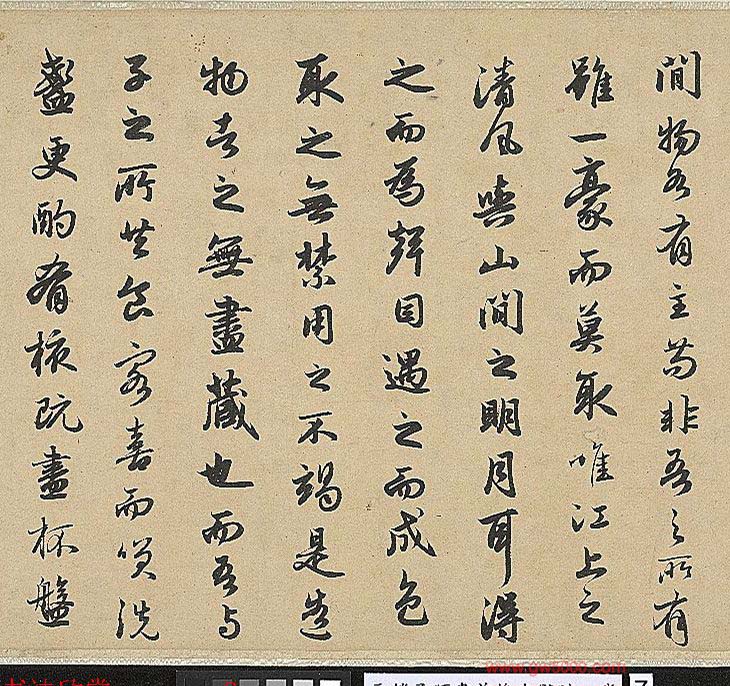 間物各有主苟非吾之所有
雖一豪而莫取惟江上之
清風與山間之明月耳得
之而為聲目遇之而成色
取之無禁用之不竭是造
物者之無盡藏也而吾与
子之所共食客喜而笑洗
盞更酌肴核既盡杯盤
www.gw5000.com
书法欣赏
7